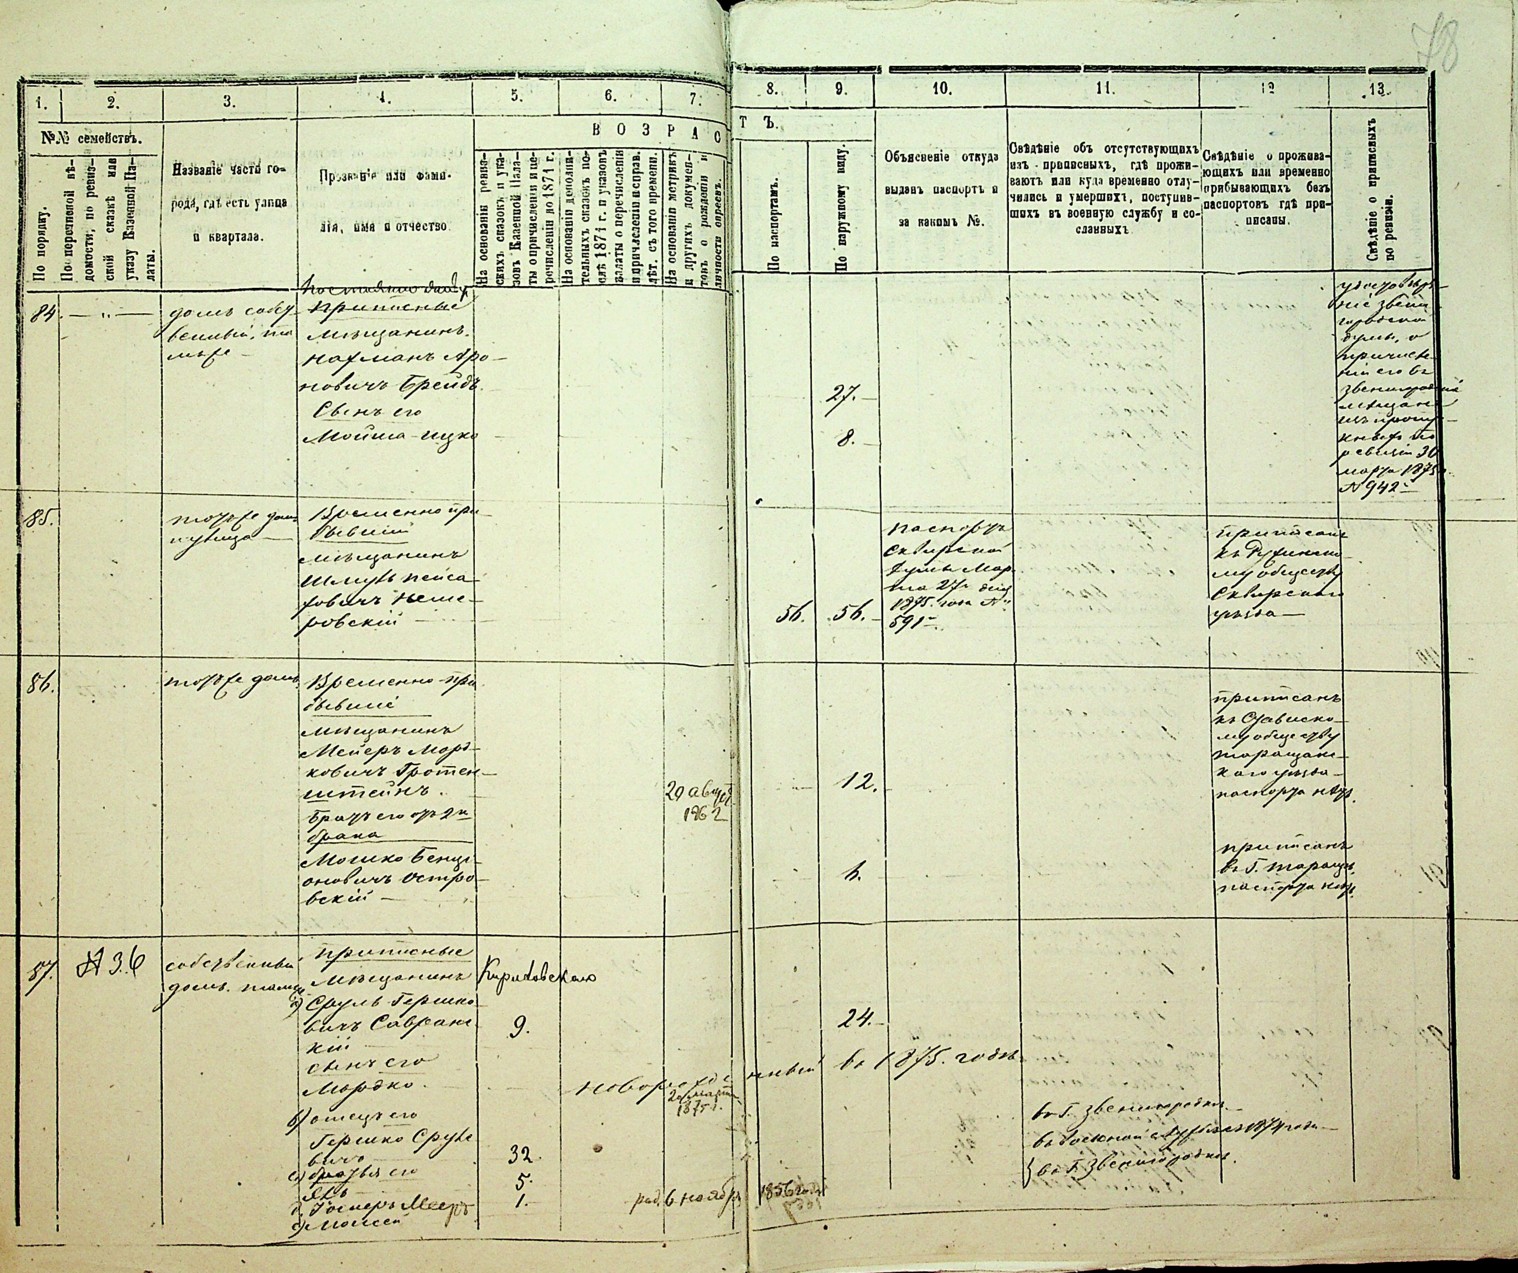 78
1. 2. 3. 4. 5. 6. 7. 8. 9. 10. 11. 12 13.
№№ семействъ.
По порядку.
По перечневой вѣ-
домости; по ревиз-
ской сказкѣ или
указу Казенной Па-
латы.
Названіе части го-
рода, гдѣ есть улица
и квартала.
Прозваніе или фами-
лія, имя и отчество
В О З Р А С Т Ъ.
На основаніи ревиз-
скихъ сказокъ и ука-
зовъ Казенной Пала-
ты о причисленіи и пе-
речисленіи до 1871 г.
На основаніи дополни-
тельныхъ сказокъ по-
слѣ 1871 г. и указовъ
палаты о перечисленіи
и причисленіи и справ.
лѣт. съ того времени.
На основаніи метрикъ
и другихъ докумен-
товъ о рожденіи и
личности евреевъ.
По паспортамъ.
По наружному виду.
Объясненіе откуда
выданъ паспортъ и
за какимъ №.
Свѣдѣніе объ отсутствующихъ
изъ приписныхъ, гдѣ прожи-
ваютъ или куда временно отлу-
чились и умершихъ, поступив-
шихъ въ военную службу и со-
сланныхъ.
Свѣдѣніе о прожива-
ющихъ или временно
прибывающихъ безъ
паспортовъ гдѣ при-
писаны.
Свѣдѣніе о приписныхъ
по ревизіи.
84. — " —
домъ собст
венный, та
мъже
приписные
мѣщанинъ
Нахманъ Аро-
новичъ Брейдъ
Сынъ его
Мойша-ицко
27.
8.
звениго
родской
думы, о
причисле
ніи его въ
ревизіи 30
марта 1875
№ 942
85.
тотже домъ
Временно при
бывшій
мѣщанинъ
Шмуль Пейса
ховичъ Неме-
ровскій
56. 56.
паспортъ
Сквирской
думы Мар
та 27 дня
1875. года №
591
приписанъ
къ Ружинско
му обществу
Сквирскаго
уѣзда
86.
тотже домъ
Временно-при
бывшіе
мѣщанинъ
Мейеръ Морд-
ковичъ Гротен-
штейнъ.
Братъ его отъ 2го
брака
Мошко Бенці-
оновичъ Остро-
вскій
20 август
1862
12.
6.
приписанъ
къ Стависко-
му обществу
Таращанс-
каго уѣзда
паспорта нѣт.
приписанъ
въ Г. Таращѣ
паспорта нѣт.
87. № 36
собственный
домъ. тамже
приписные
Мѣщанинъ
Сруль Гершко
вичъ Савранс
кій
сынъ его
Мордко.
в) отецъ его
Гершко Сруле
вичъ
с) братья его
Іосперъ Меер
Мойсей
9.
32.
5.
1.
24.
новорожде нный въ 1875. годѣ
20 марта
1875 г.
род. 6 ноября 1856 года
въ г. Звенигородкѣ
въ Военной службѣ съ 1874 года
въ Г. Звенигородкѣ.